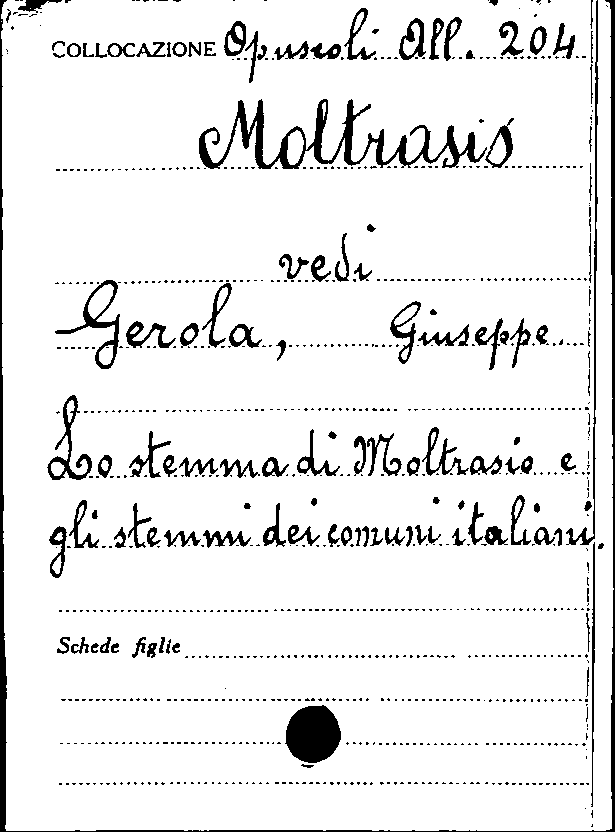 COLLOCAZIONE Opuscoli All. 204
Moltrasio
vedi
Gerola, Giuseppe
Lo stemma di Moltrasio e
gli stemmi dei comuni italiani.
Schede figlie